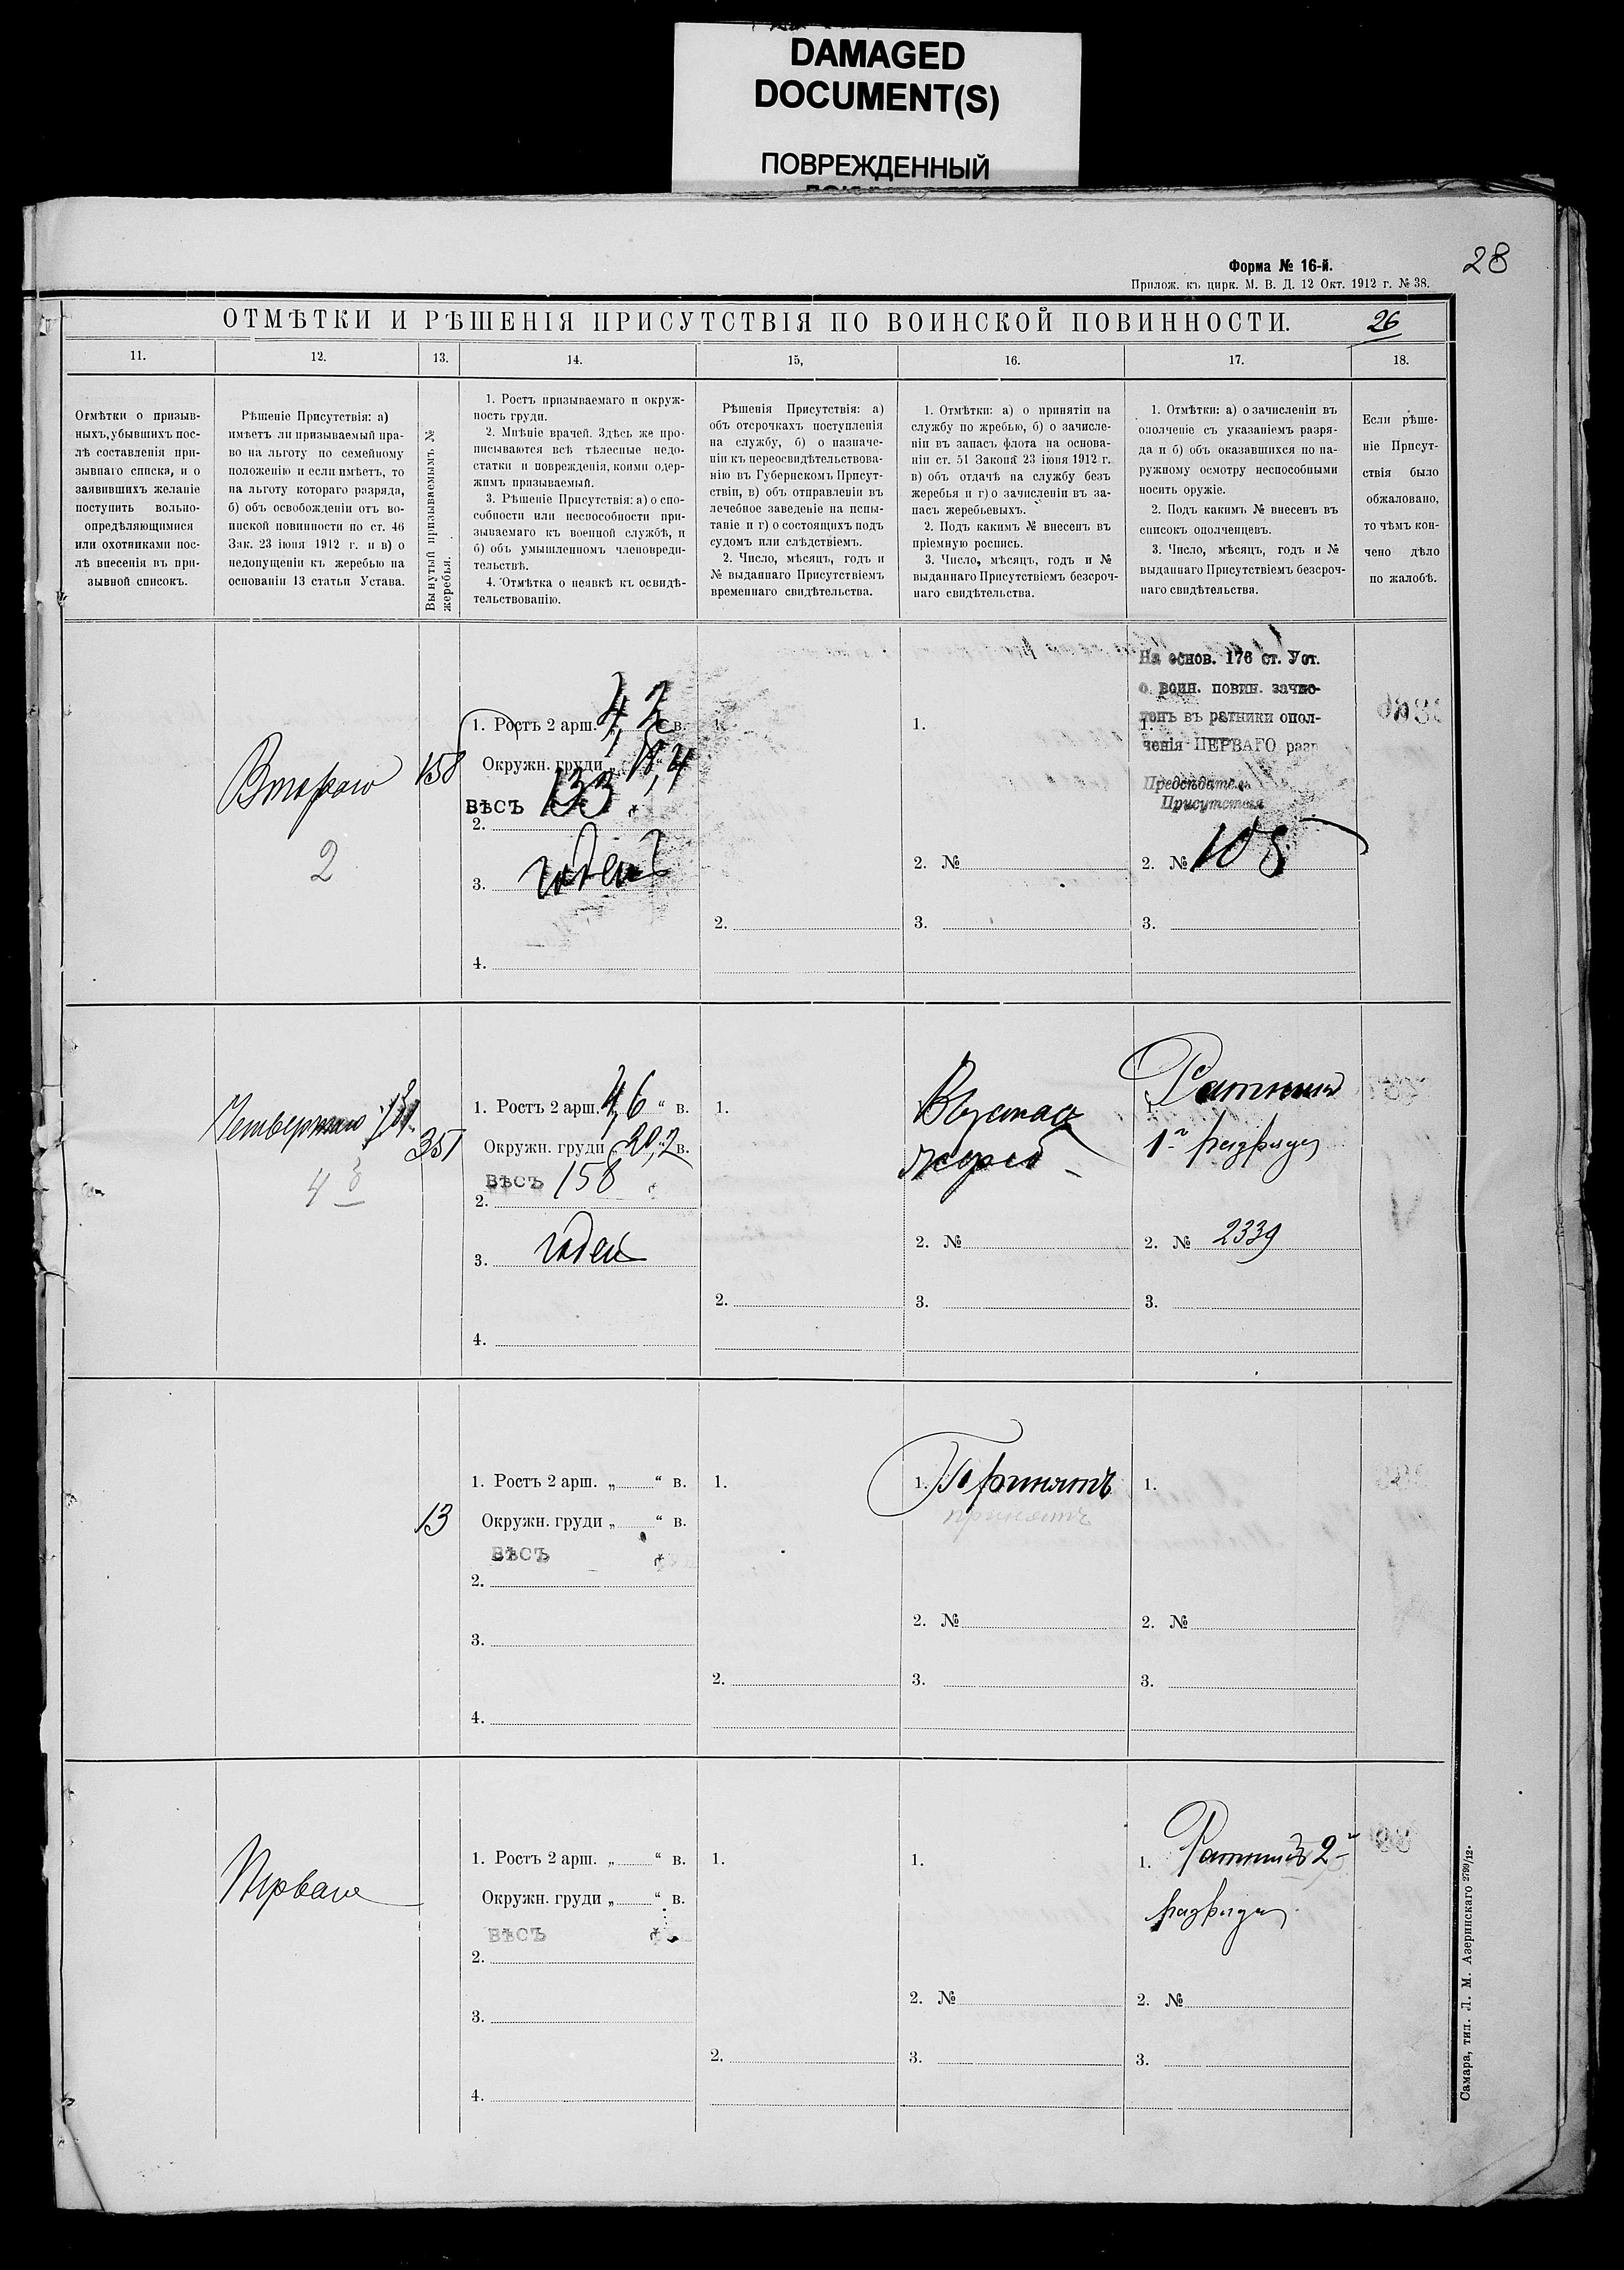 DAMAGED
DOCUMENT(S)
ПОВРЕЖДЕННЫЙ
28
Форма № 16-й.
Прилож. къ цирк. М. В. Д. 12 Окт. 1912 г. № 38.
ОТМѢТКИ И РѢШЕНІЯ ПРИСУТСТВІЯ ПО ВОИНСКОЙ ПОВИННОСТИ.
26
11.
12.
13.
14.
15,
16.
17.
18.
Отмѣтки о призыв-
ныхъ, убывшихъ пос-
лѣ составленія при-
зывнаго списка, и о
заявившихъ желаніе
поступить вольно-
опредѣляющимися
или охотниками пос-
лѣ внесенія въ при-
зывной списокъ.
Рѣшеніе Присутствія: а)
имѣетъ ли призываемый пра-
во на льготу по семейному
положенію и если имѣетъ, то
на льготу котораго разряда,
б) объ освобожденіи отъ во-
инской повинности по ст. 46
Зак. 23 іюня 1912 г. и в) о
недопущеніи къ жеребью на
основаніи 13 статьи Устава.
Вынутый призываемымъ №
жеребья.
1. Ростъ призываемаго и окруж-
ность груди.
2. Мнѣніе врачей. Здѣсь же про-
писываются всѣ тѣлесные недо-
статки и поврежденія, коими одер-
жимъ призываемый.
3. Рѣшеніе Присутствія: а) о спо-
собности или неспособности при-
зываемаго къ военной службѣ, и
б) объ умышленномъ членовреди-
тельствѣ.
4. Отмѣтка о неявкѣ къ освидѣ-
тельствованію.
Рѣшенія Присутствія: а)
объ отсрочкахъ поступленія
на службу, б) о назначе-
ніи къ переосвидѣтельствова-
нію въ Губернскомъ Присут-
ствіи, в) объ отправленіи въ
лечебное заведеніе на испы-
таніе и г) о состоящихъ подъ
судомъ или слѣдствіемъ.
2. Число, мѣсяцъ, годъ и
№ выданнаго Присутствіемъ
временнаго свидѣтельства.
1. Отмѣтки: а) о принятіи на
службу по жребью, б) о зачисле-
ніи въ запасъ флота на основа-
ніи ст. 51 Закона 23 іюня 1912 г.
в) объ отдачѣ на службу безъ
жеребья и г) о зачисленіи въ за-
пасъ жеребьевыхъ.
2. Подъ какимъ № внесенъ въ
пріемную роспись.
3. Число, мѣсяцъ, годъ и №
выданнаго Присутствіемъ безсроч-
наго свидѣтельства.
1. Отмѣтки: а) о зачисленіи въ
ополченіе съ указаніемъ разря-
да и б) объ оказавшихся по на-
ружному осмотру неспособными
носить оружіе.
2. Подъ какимъ № внесенъ въ
списокъ ополченцевъ.
3. Число, мѣсяцъ, годъ и №
выданнаго Присутствіемъ безсроч-
наго свидѣтельства.
Если рѣше-
ніе Присут-
ствія было
обжаловано,
то чѣмъ кон-
чено дѣло
по жалобѣ.
Втораго
2
158
1. Ростъ 2 арш. 4,2 в.
Окружн. груди „ 18,4
ВѢСЪ 133 ф
2.
3. годенъ
4.
1.
2.
1.
2. №
3.
На основ. 176 ст. Уст.
о воин. повин. зачис-
ленъ въ ратники опол-
1.
ченія ПЕРВАГО разр
Предсѣдатель
Присутствія
2. № 108
3.
Четвертаго
4 3
351
1. Ростъ 2 арш. 4,6 “ в.
Окружн. груди „ 20,2 в.
ВѢСЪ 158 ф
2.
3. годенъ
4.
1.
2.
жереб
2. №
3.
Ратникъ
1.
1го разряда
2. № 2339
3.
13
1. Ростъ 2 арш. „ “ в.
Окружн. груди „ “ в.
ВѢСЪ ф
2.
3.
4.
1.
2.
1. Принятъ
принятъ
2. №
3.
1.
2. №
3.
Перваго
1. Ростъ 2 арш. „ “ в.
Окружн. груди „ “ в.
ВѢСЪ ф
2.
3.
4.
1.
2.
1.
2. №
3.
1. Ратникъ 2го
разряда
2. №
3.
Самара, тип. Л. М. Азеринскаго 2799/12.